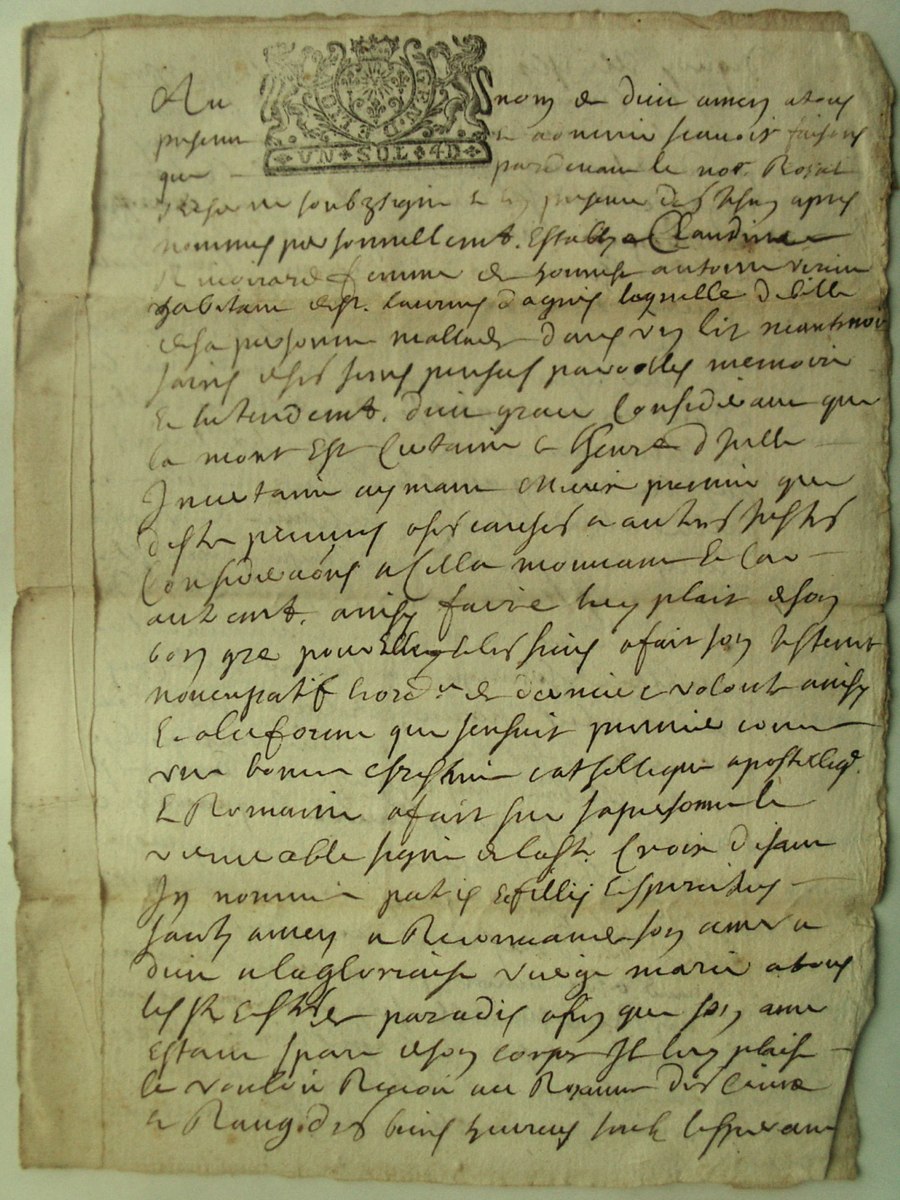 Au nom de dieu amen a tous
GEN D
UN SOL 4D
presens et advenir scavoir faisons
que pardevant le not. Royal
soubzsigne et en presence des tesmoins apres
nommes personnellemt. establye Claudine
femme de honneste antoine
habitant de st. laurens d'agnis laquelle debille
de sa personne mallade dans un lit neantmoins
saine de ses sens pensees parolles memoire
et entendemt. dieu grace Considerant que
la mort est Certaine et lheure d'Icelle
Incertaine aymant mieux premier que
a ses causes et autres justes
Considerations a Celle mouvant et Car
autremt. ainsy faire luy plait de son
bon gre pour elle et les siens a fait son testemt
noncupatif de derniere volonte ainsy
et a la forme que sensuit premier comme
une bonne chrestienne catholique apostoliq.
et Romaine a fait sur sa personne le
venerable signe de la ste. Croix disant
In nomine patris et fillij et spiritus
santy amen a Recommande son ame a
dieu a la gloriause vierge marie a tous
les sts et stes de paradis afin que son ame
estant separe de son corps Il luy plaise
la voulloir Recevoir au Royaume des Cieux
au Rang des bien heureux soubz lesperance